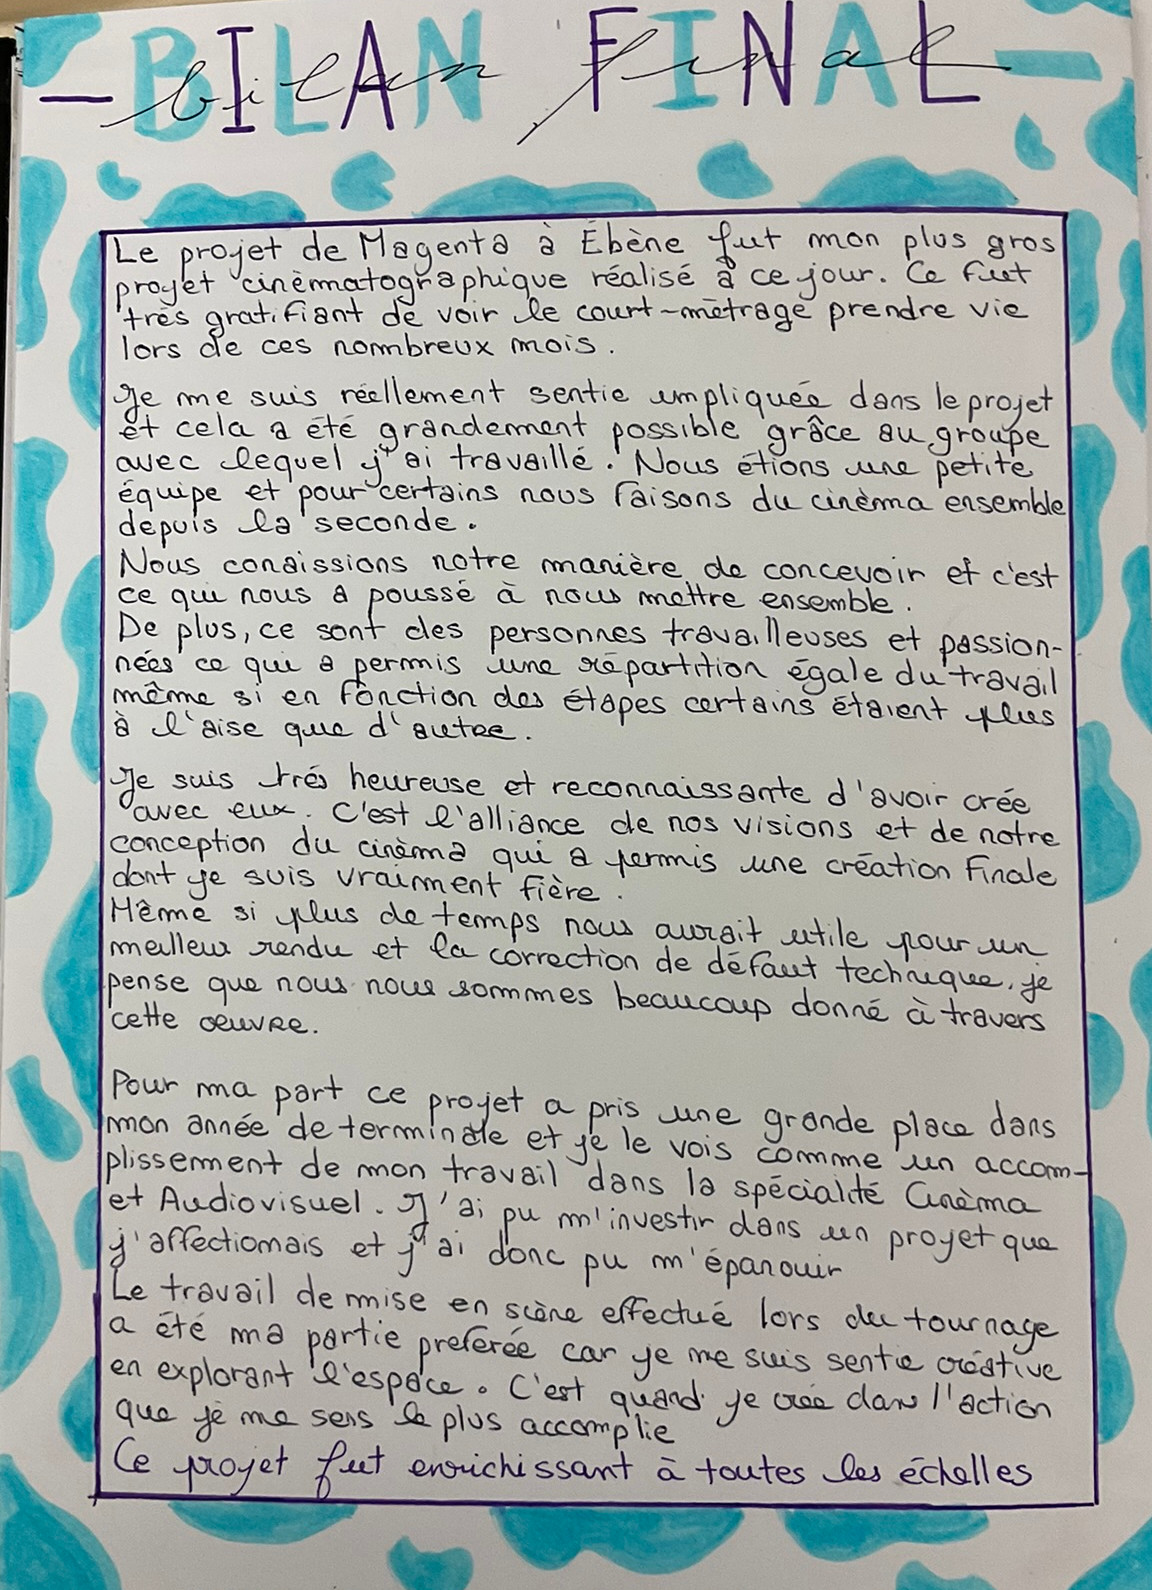 - BILAN FINAL -
bilan final
Le projet de Magenta à Ébène fut mon plus gros
projet cinèmatographique réalisé à ce jour. Ce fut
très gratifiant de voir le court-métrage prendre vie
lors de ces nombreux mois.
Je me suis réellement sentie impliquée dans le projet
et cela a été grandement possible grâce au groupe
avec lequel j'ai travaillé. Nous étions une petite
équipe et pour certains nous faisons du cinèma ensemble
depuis la seconde.
Nous conaissions notre manière de concevoir et c'est
ce qui nous a poussé à nous mettre ensemble.
De plus, ce sont des personnes travailleuses et passion-
nées ce qui a permis une répartition égale du travail
même si en fonction des étapes certains étaient plus
à l'aise que d'autre.
Je suis trés heureuse et reconnaissante d'avoir crée
avec eux. C'est l'alliance de nos visions et de notre
conception du cinèma qui a permis une création finale
dont je suis vraiment fière.
Même si plus de temps nous aurait utile pour un
meilleur rendu et la correction de défaut technique, je
pense que nous nous sommes beaucoup donné à travers
cette oeuvre.
Pour ma part ce projet a pris une grande place dans
mon année de terminale et je le vois comme un accom-
plissement de mon travail dans la spécialité Cinèma
et Audiovisuel. J'ai pu m'investir dans un projet que
j'affectionais et j'ai donc pu m'épanouir
Le travail de mise en scène effectué lors du tournage
a été ma partie preférée car je me suis sentie créative
en explorant l'espace. C'est quand je crée dans l'action
que je me sens le plus accomplie
Ce projet fut enrichissant à toutes les échelles